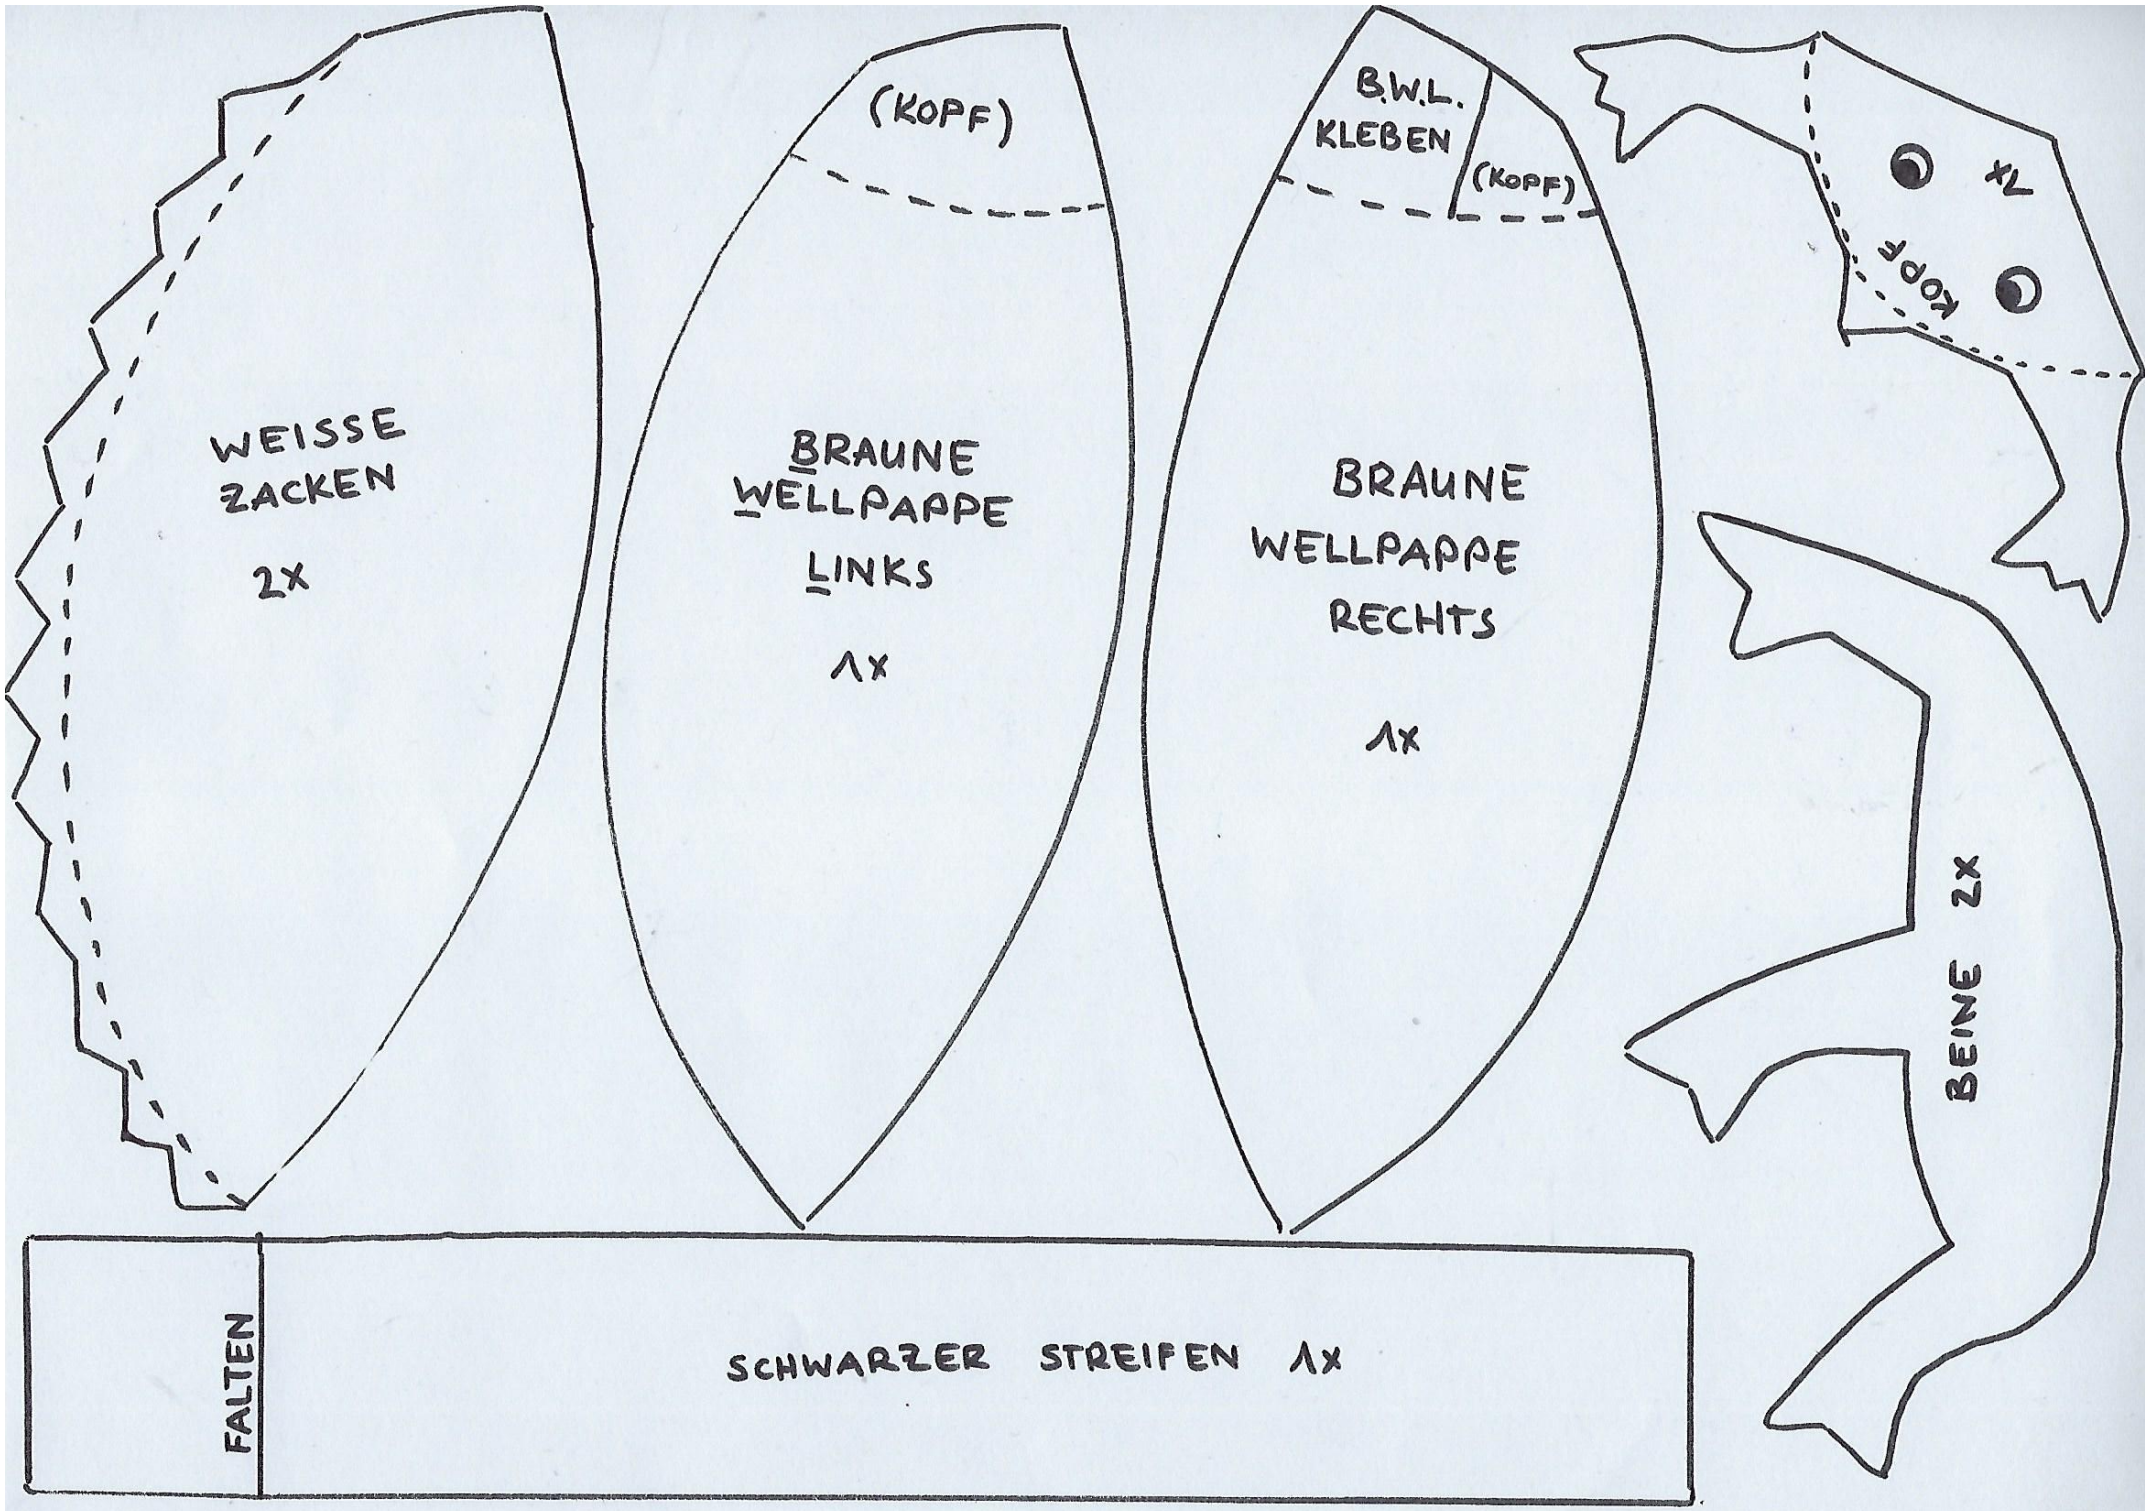 WEISSE
ZACKEN
2X
(KOPF)
BRAUNE
WELLPAPPE
LINKS
1X
B.W.L.
KLEBEN
(KOPF)
BRAUNE
WELLPAPPE
RECHTS
1X
1X
KOPF
BEINE 2X
FALTEN
SCHWARZER STREIFEN 1X